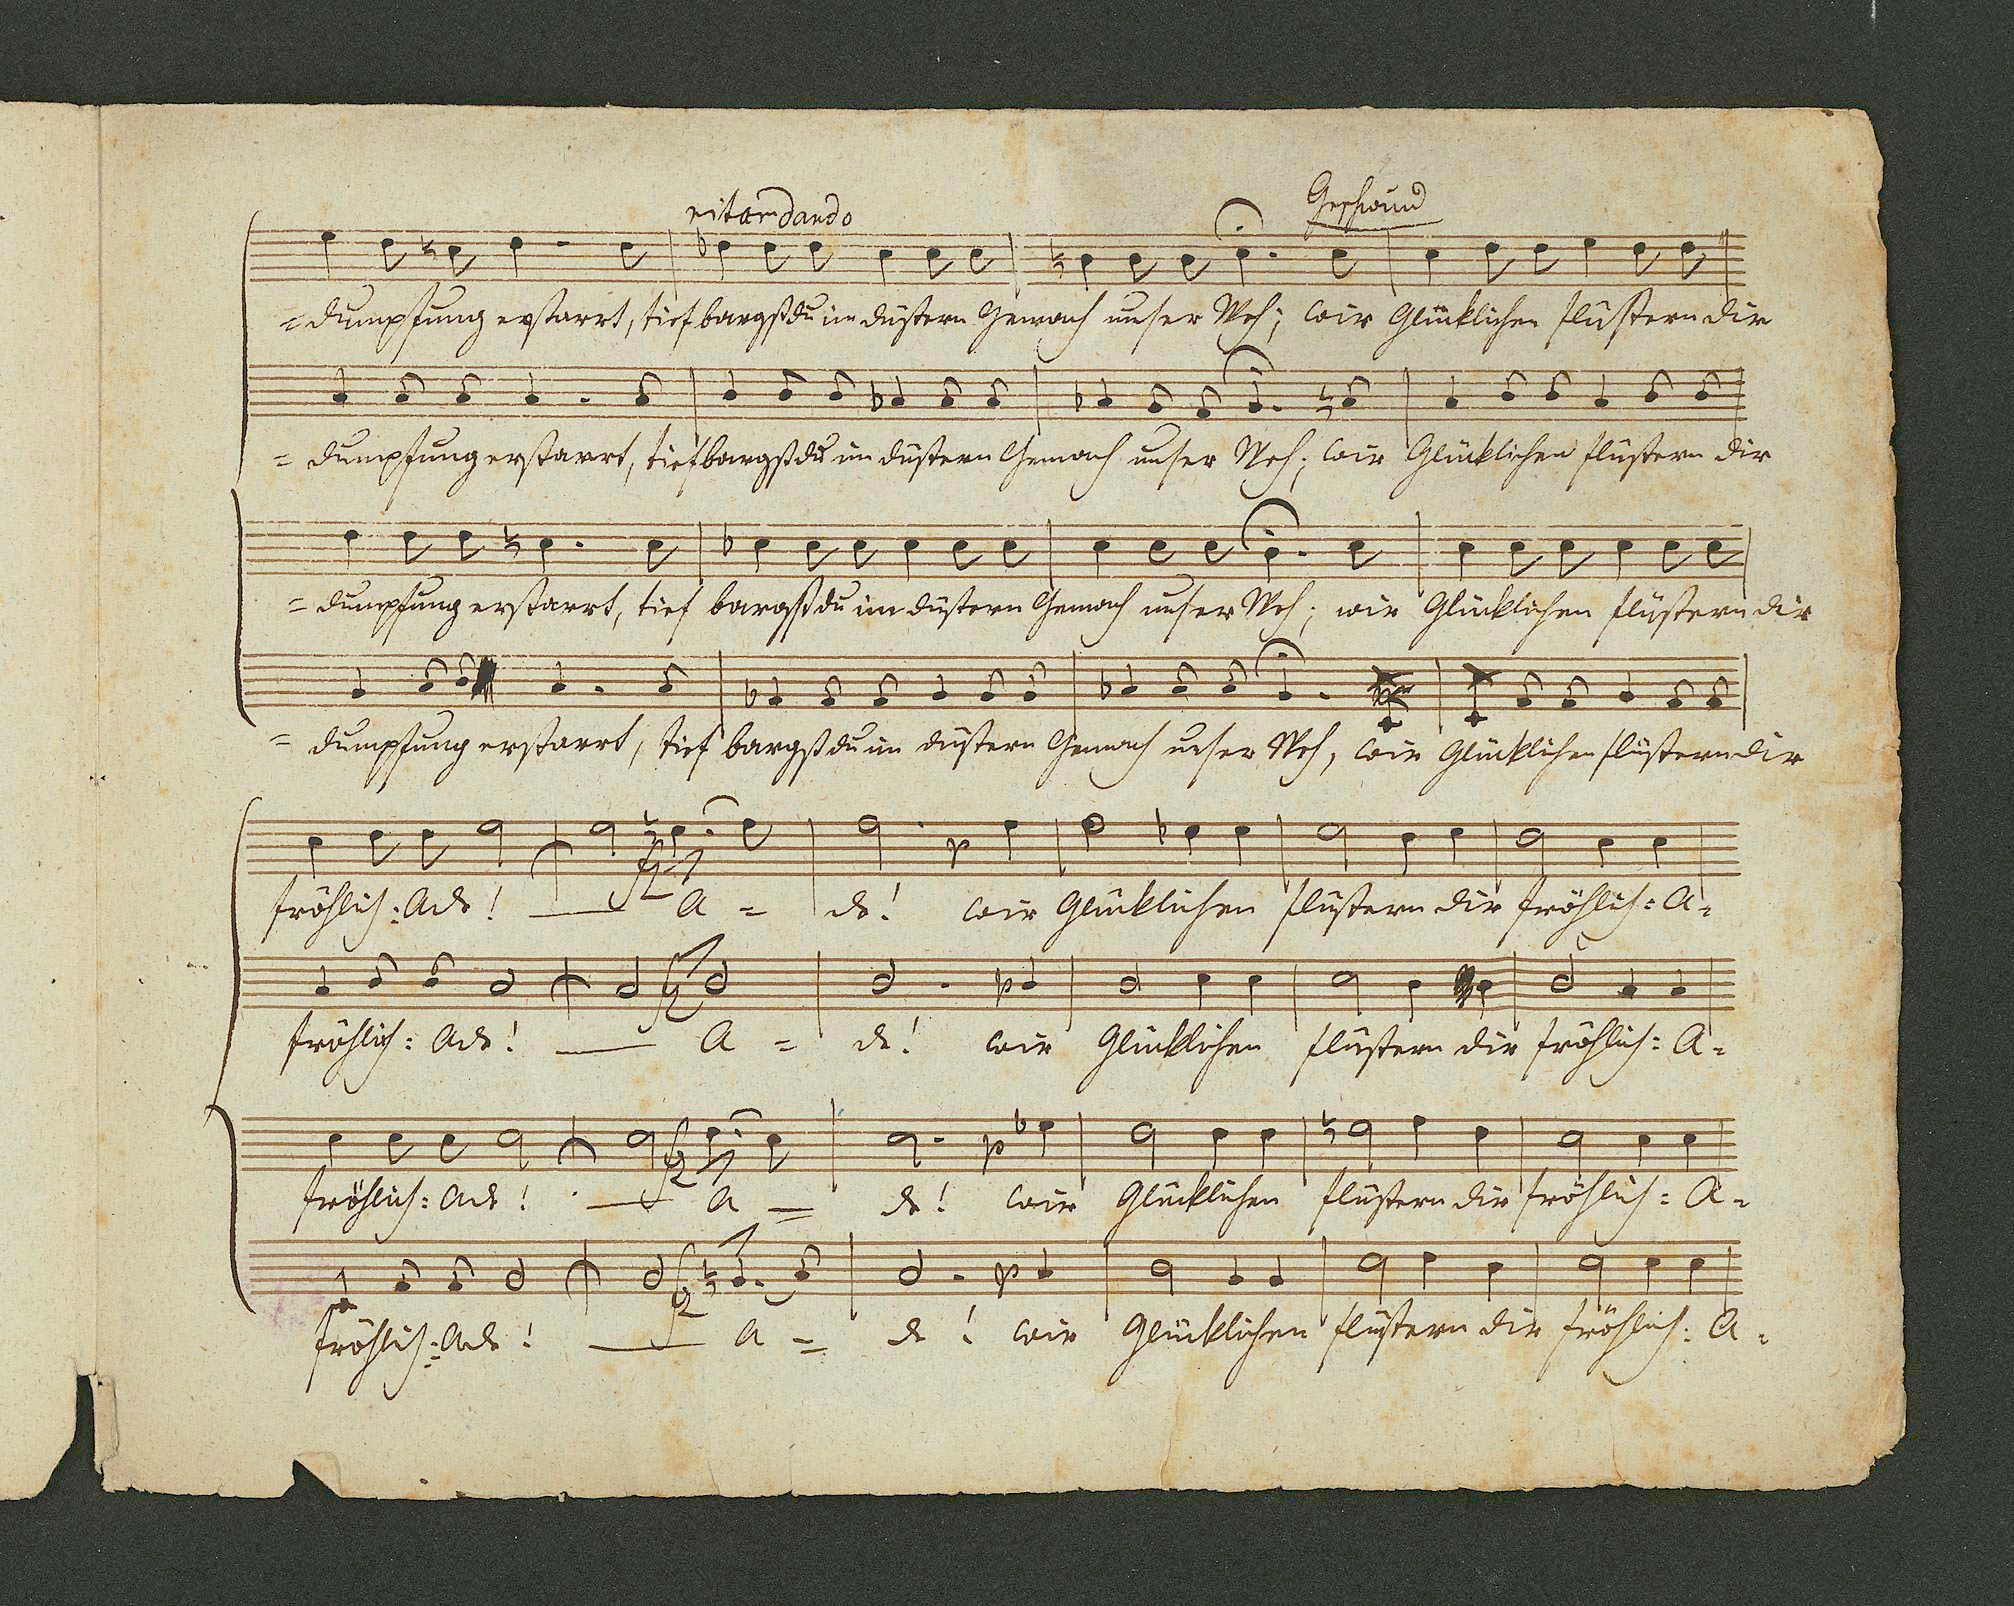 ritardando Geschwind
=dumpfung erstarrt, tief bargst du im düstern Gemach unser Weh; wir Glücklichen flüstern dir
=dumpfung erstarrt, tief bargst du im düstern Gemach unser Weh; wir Glücklichen flüstern dir
=dumpfung erstarrt, tief bargst du im düstern Gemach unser Weh; wir Glücklichen flüstern dir
=dumpfung erstarrt, tief bargst du im düstern Gemach unser Weh, wir Glücklichen flüstern dir
fz p
fröhlich: Ade! — A = de! wir Glücklichen flüstern dir fröhlich: A=
fz p
fröhlich: Ade! — A = de! wir Glücklichen flüstern dir fröhlich: A=
fz p
fröhlich: Ade! — A = de! wir Glücklichen flüstern dir fröhlich: A=
fz p
fröhlich: Ade! — A = de! wir Glücklichen flüstern dir fröhlich: A=